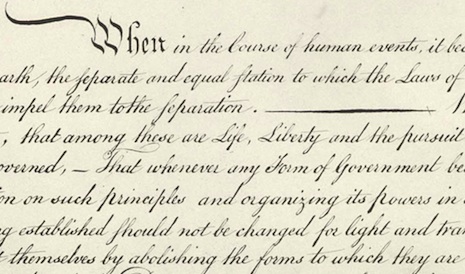 When in the Course of human events, it bec
arth, the separate and equal station to which the Laws of
impel them to the separation. 
, that among these are Life, Liberty and the pursuit
overned, — That whenever any Form of Government be
on on such principles and organizing its powers in
g established should not be changed for light and tran
t themselves by abolishing the forms to which they are